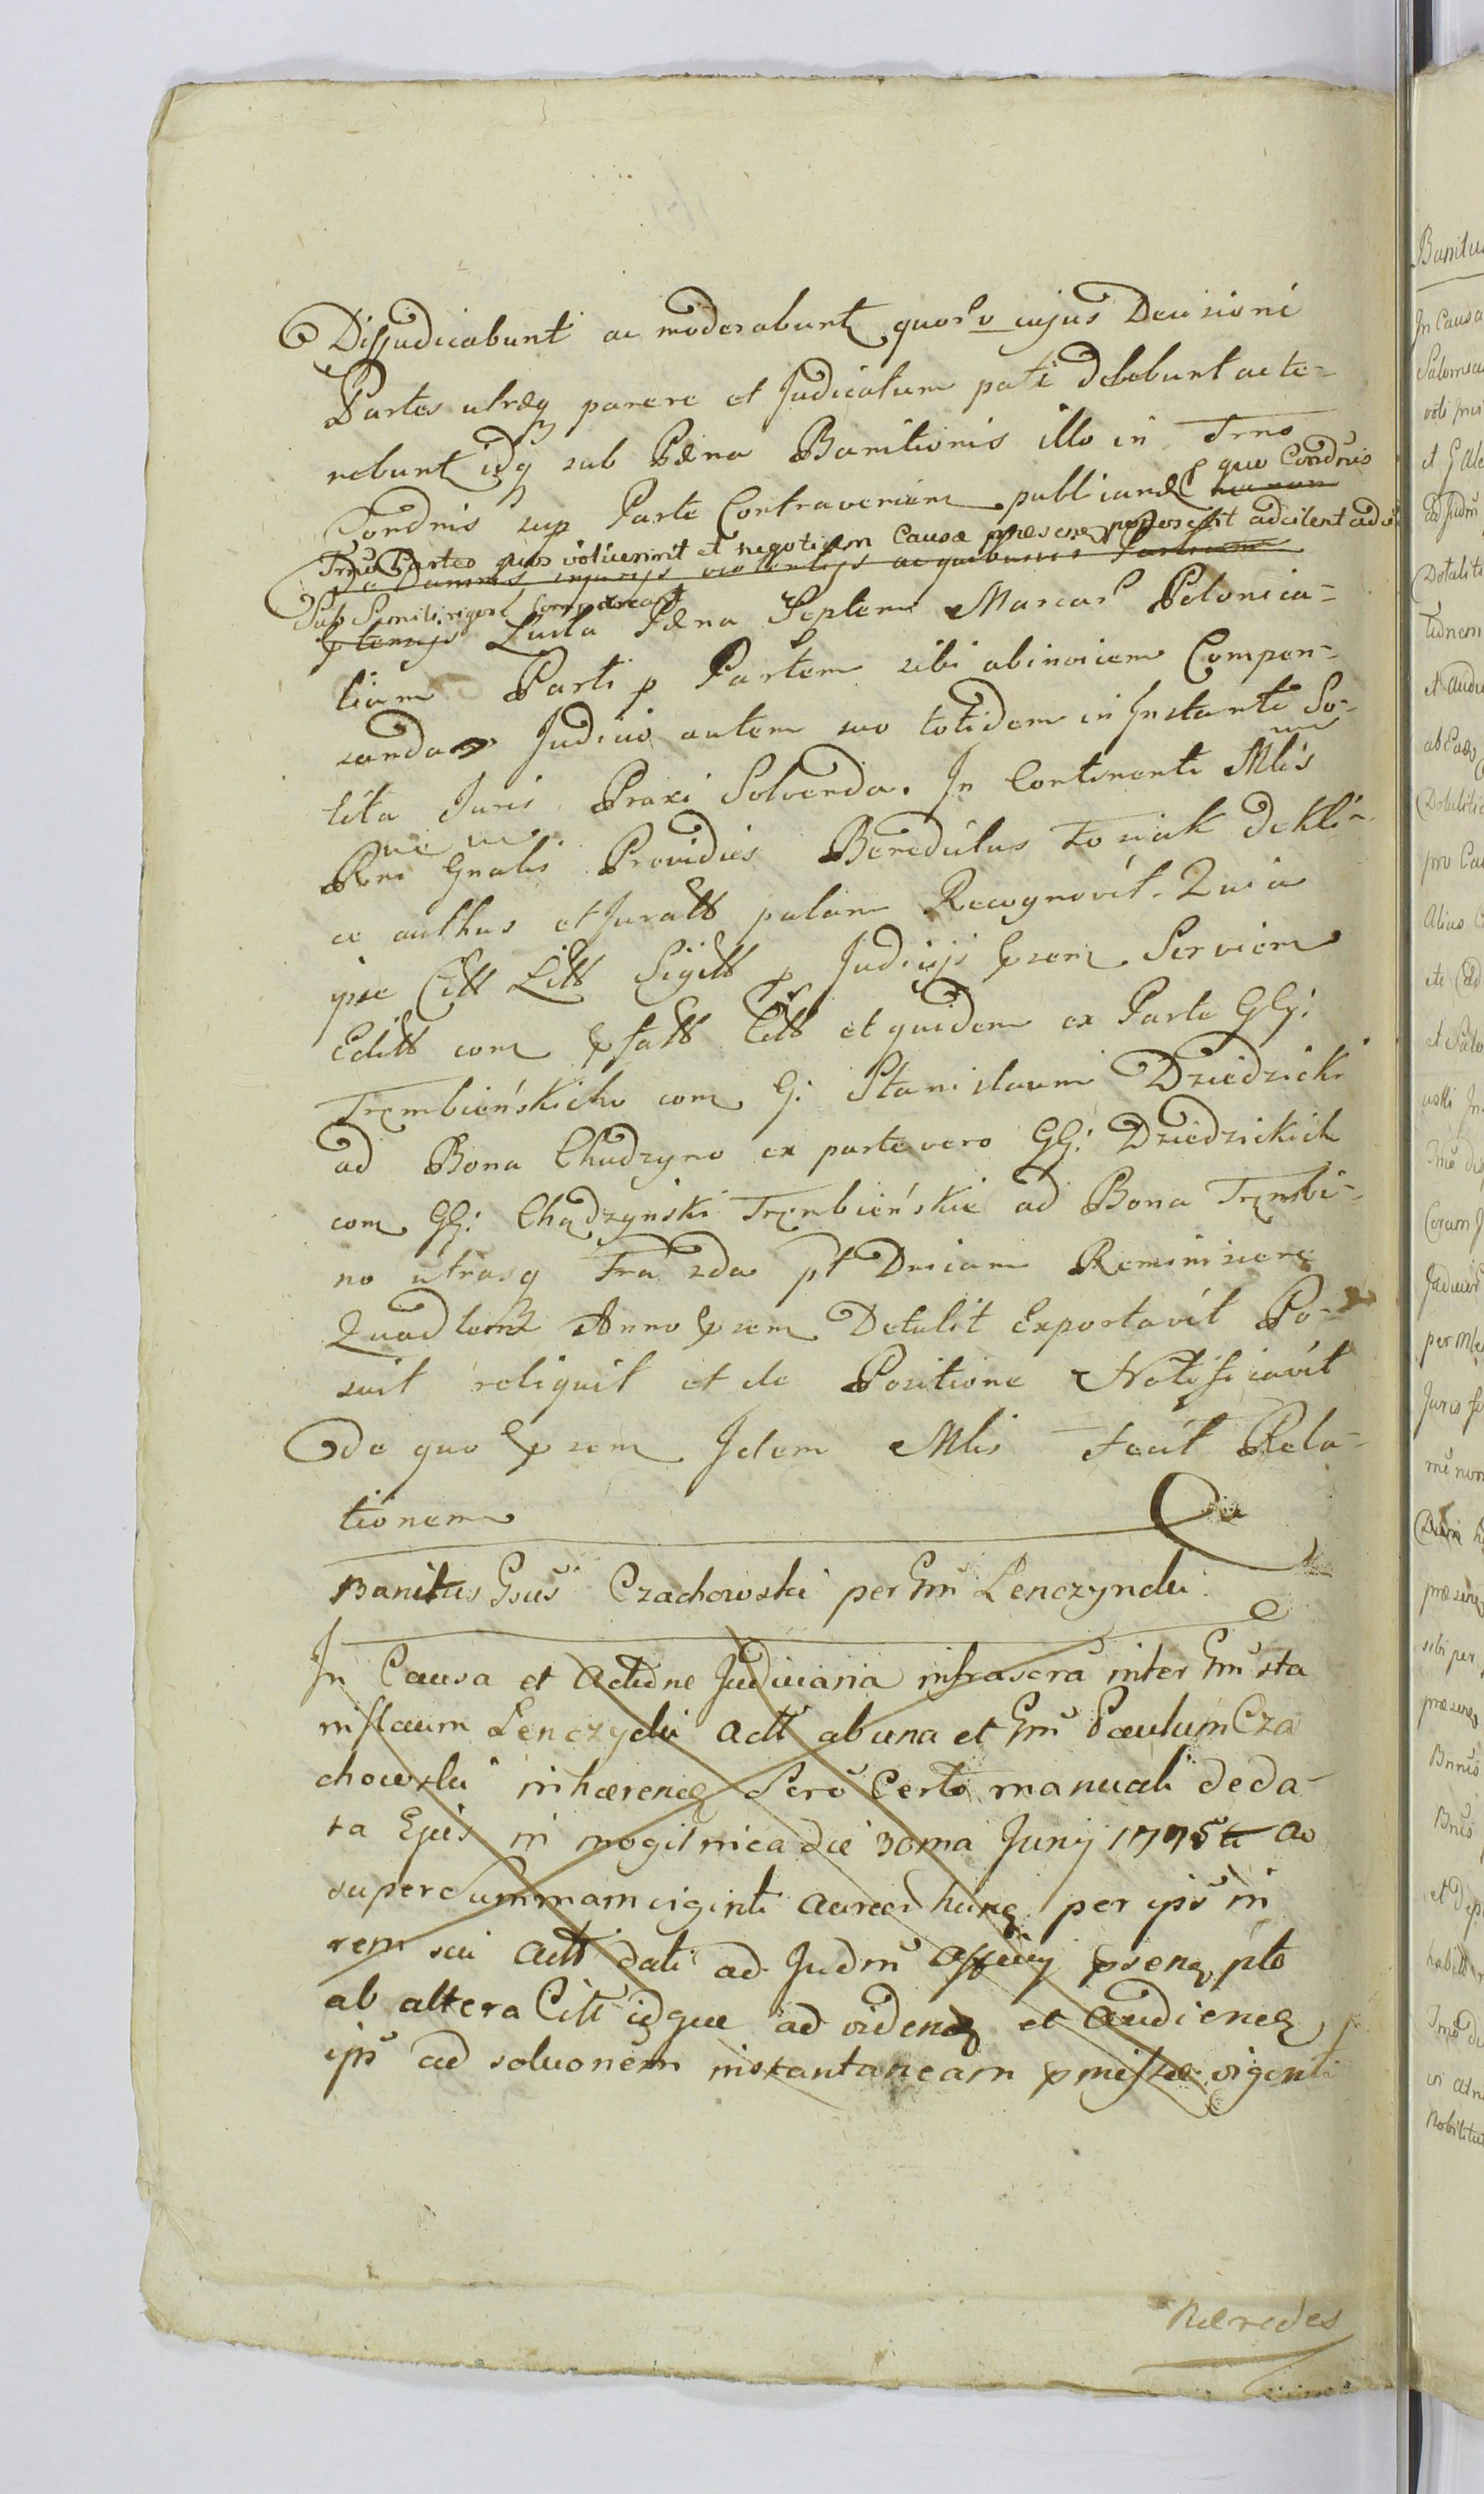 Disjudicabunt ac moderabunt quor v cujus Decisioni
Partes utræq parere et Judicatum pati debebunt ac te-
nebunt idq sub Pæna Banitionis illo in Trno
Condnis sup Parte Contravenien publicand quo Condnis
Trno Partes quos voluerint et negotium Causæ præsens poposcerit adcitent ad
de Damnis injurijs violentijs ac quibusvis
Sub Simili rigore compareant
Lucta Pæna Septem Marcar Polonica-
lium Parti p Partem sibi abinvicem Compen-
sanda Judicio autem suo totidem in Instanti So-
lita Juris Praxi Solvenda. In Continenti Mlis
Rni Gnalis Providus Benedictus Tosiak de Kli-
ce authus et Juratt palam Recognovit. Quia
ipse Citt Litt Sigitt p Judicij psem Serviem
Editt com psatt Citt et quidem ex Parte GG:
Trembieńskich com G: Stanislaum Dziedzicki
ad Bona Chudzyno ex parte vero GG: Dziedzickich
com GG: Chądzyński Trembieńskie ad Bona Trembi-
no utrasq Fra 2da pt Dnicam Reminiscere
Quadlem Anno psem Detulit Exportavit Po-
suit reliquit et de Positione Notificavit
de quo psem Idem Mlis Fecit Rela-
tionem
Banitus Gsus Czachowski per Gm Lenczyndu
In Causa et Actione Judiciaria infrascra inter Gm Sta
nislaum Lenczycki Actt ab una et Gm Paulum Cza
chowski inhærendo Scro Certo manuali de da-
ta Ejus in mogilnica die 30ma Junij 1775ti ac
super Summam viginti aureor hung per ips in
rem sui Actt dati ad Judm Officij psens pto
ab altera Citt idque ad videndum et audiendum
ips ad soluonem instantaneam pmissæ viginti
Hæredes